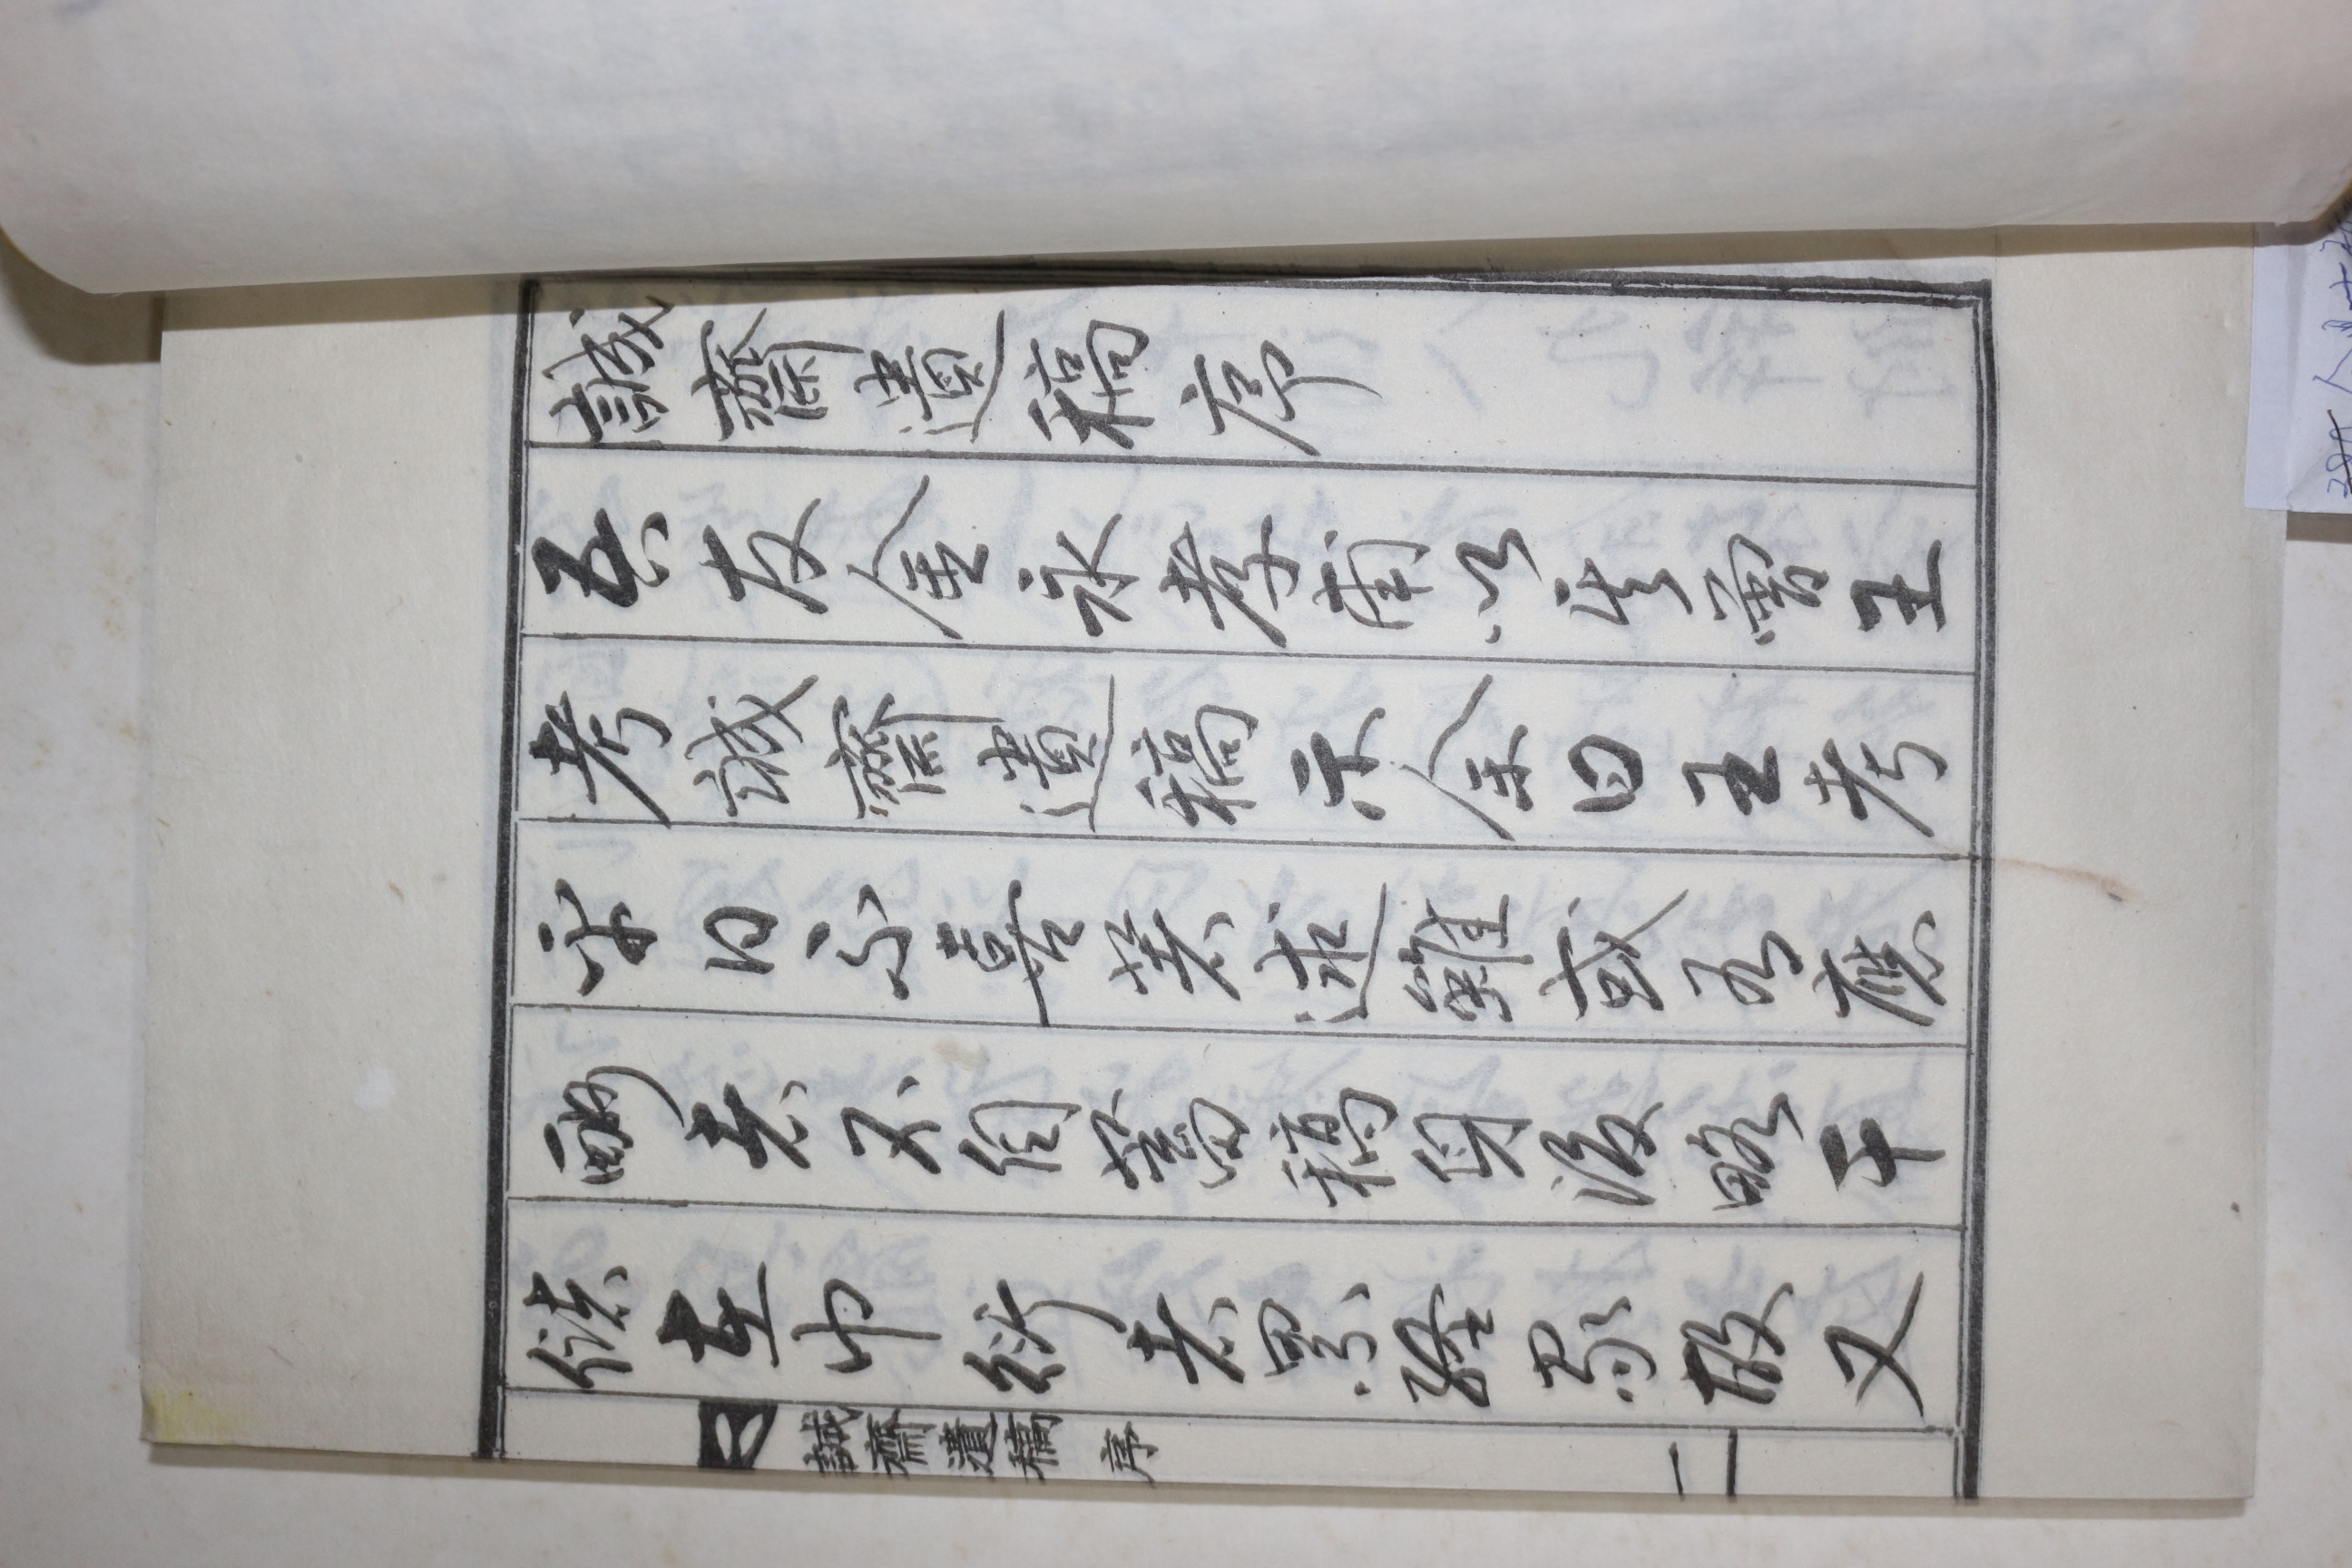 誠齋遺稿序
吾友金永孝甫以其曾王
考誠齋遺稿示余曰王考
平日不喜著述雖或有應
酬者不自蓄稿身後略干
儲在巾衍者累經家故又
誠齋遺稿 序
一